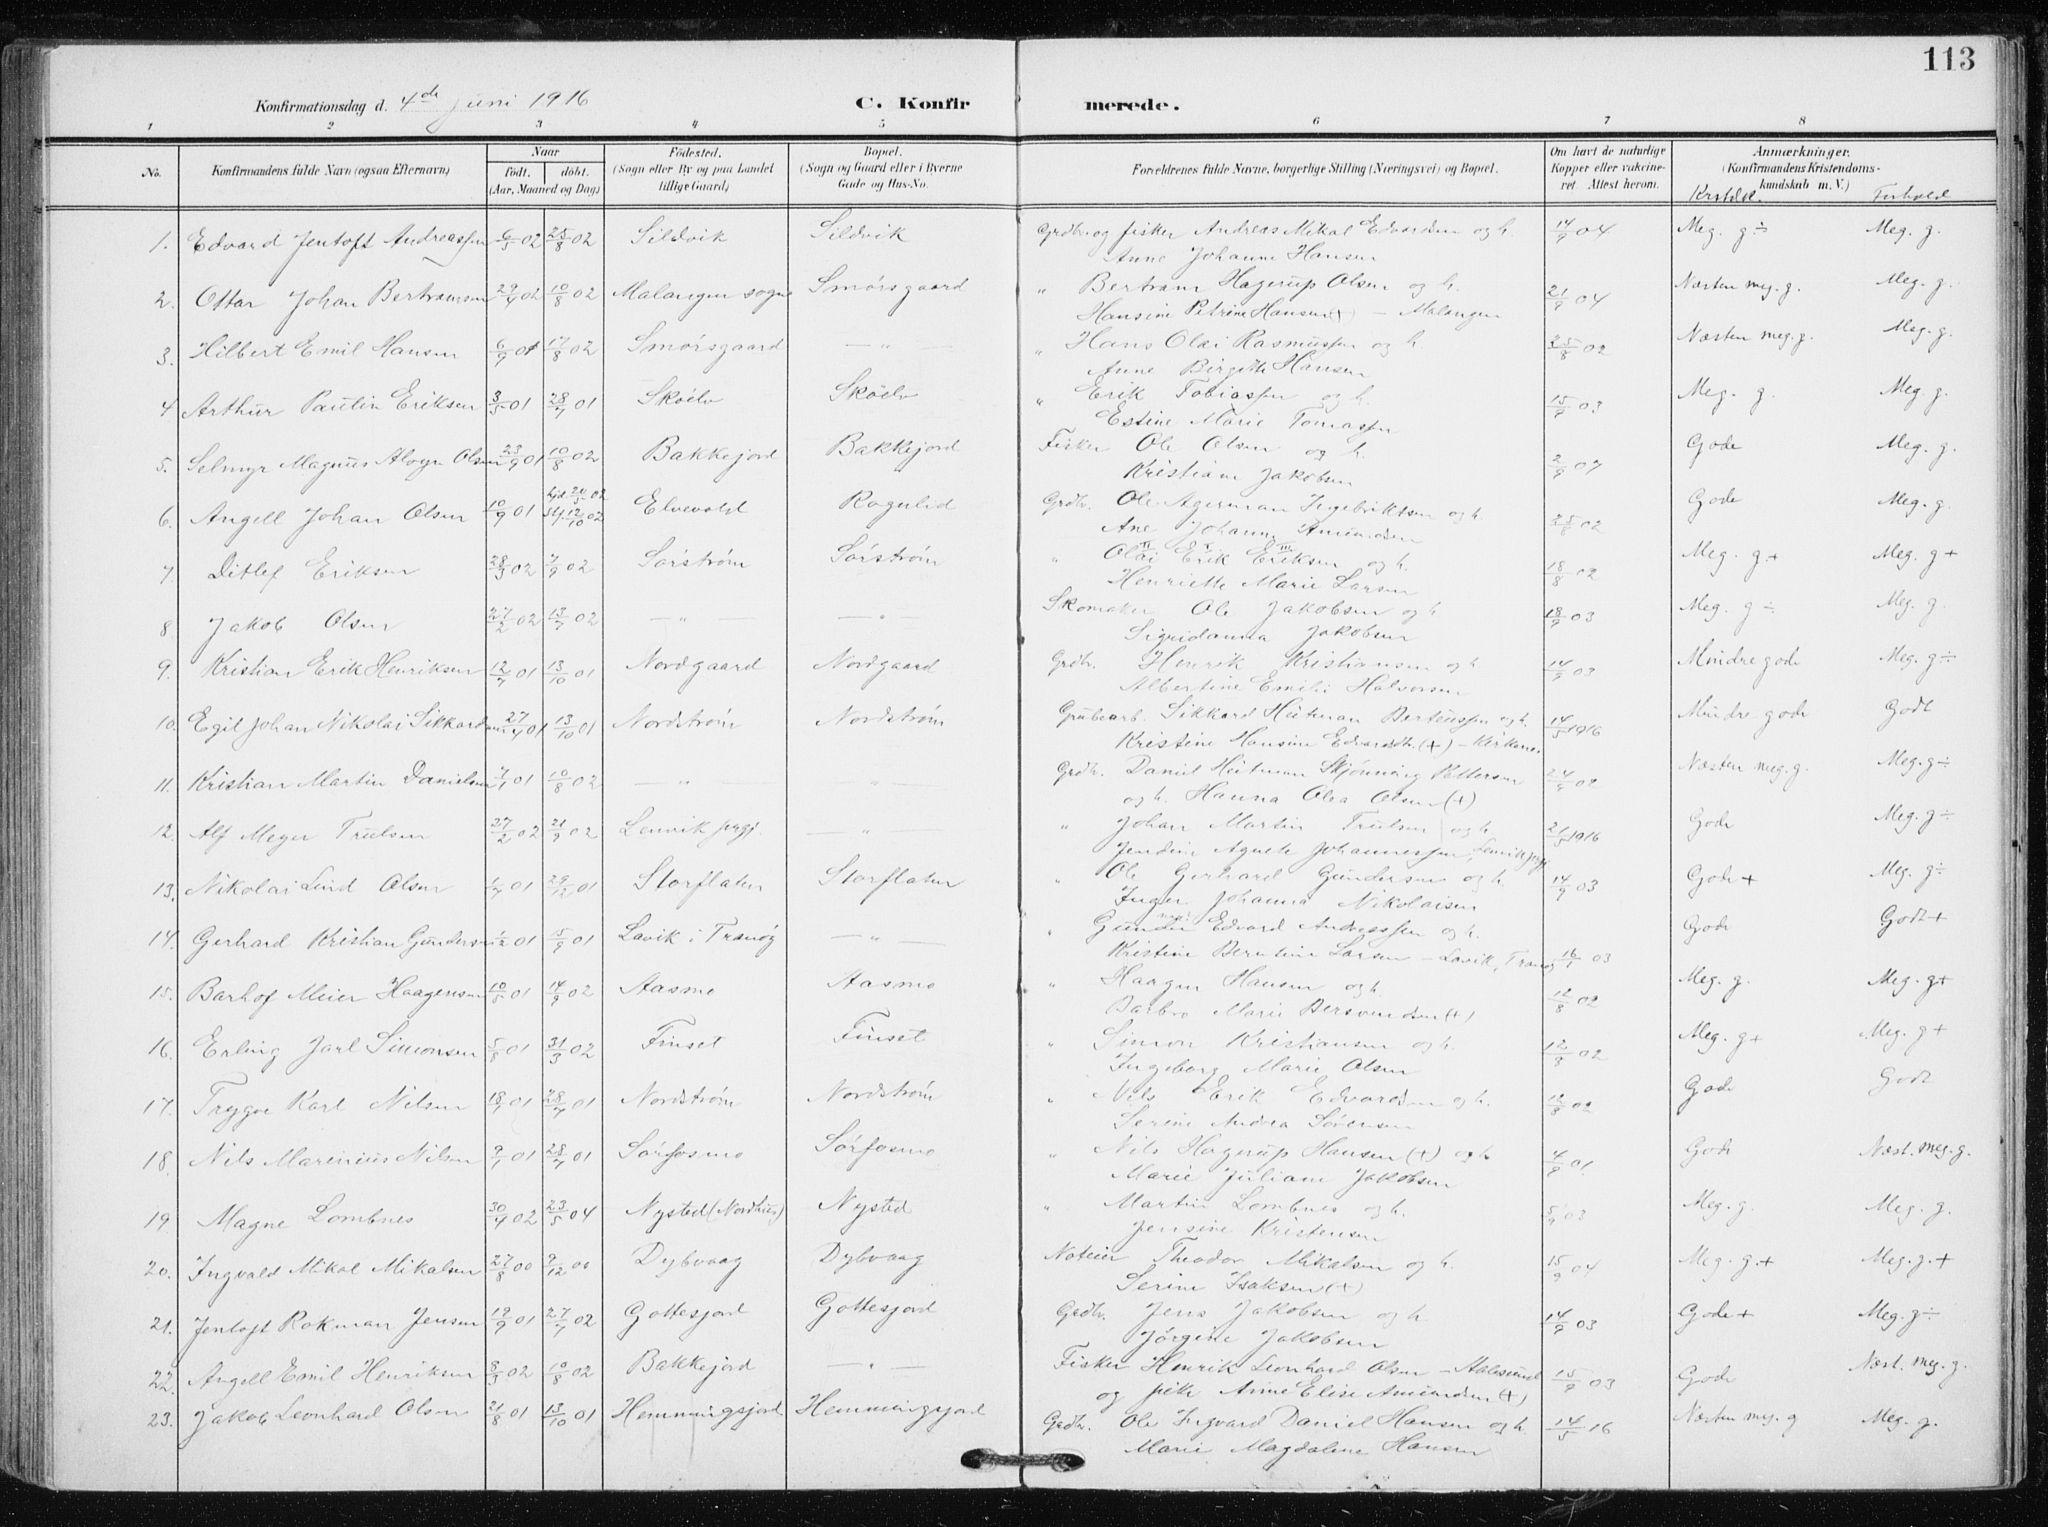 113
Konfirmationsdag d. 4de juni 1916 C. Konfirmerede.
1 2 3 4 5 6 7 8
No. Konfirmandens fulde Navn (ogsaa Efternavn) Naar født. døbt. (Aar, Maaned og Dag) Fødested. (Sogn eller By og paa Landet tillige Gaard) Bopæl. (Sogn og Gaard eller i Byerne Gade og Hus-No. Forældrenes fulde Navne, borgerlige Stilling (Næringsvei) og Bopæl. Om havt de naturlige Kopper eller vakcineret. Attest herom. Anmærkninger. (Konfirmandens Kristendomskundskab m. V.) Forhold
1. Edvard Jentoft Andreassen 6/5 02 25/8 02 Sildvik Sildvik Grdbr. og fisker Andreas Mikal Edvardsen og h. 14/9 04 Meg. g ÷ Meg. g.
Anne Johanne Hansen
2. Ottar Johan Bertramsen 29/4 02 10/8 02 Malangen sogn Smørsgaard " Bertram Hagerup Olsen og h. 21/9 04 Næsten meg. g. Meg. g.
Hansine Petrine Hansen (+) – Malangen
3. Hilbert Emil Hansen 6/9 01 17/8 02 Smørsgaard — " — " Hans Olai Rasmussen og h. 25/8 02 Næsten meg. g. Meg. g.
Anne Birgitte Hansen
4 Arthur Paulin Eriksen 3/5 01 28/7 01 Skøelv Skøelv " Erik Tobiassen og h. 15/9 03 Meg. g. Meg. g.
Estine Marie Tomassen
5. Selmyr Magnus Alvyn Olsen 23/9 01 10/8 02 Bakkejord Bakkejord Fisker Ole Olsen og h. 2/9 07 Gode Meg. g.
Kristiane Jakobsen
6. Angell Johan Olsen 10/9 01 12/10 02 Elvevold Rognlid Grdbr. Ole Agerman Ingebriktsen og h. 25/8 02 Gode Meg. g.
Ane Johanne Amundsen
7. Ditlef Eriksen 28/3 02 7/9 02 Sørstrøm Sørstrøm " Olai Erik Eriksen og h. 18/8 02 Meg. g + Meg. g +
Henriette Marie Larsen
8 Jakob Olsen 27/2 02 13/7 02 — " — — " — Skomaker Ole Jakobsen og h. 18/9 03 Meg. g ÷ Meg. g.
Sigridanna Jakobsen
9. Kristian Erik Henriksen 12/7 01 13/10 01 Nordgaard Nordgaard Grdbr. Henrik Kristiansen og h. 14/9 03 Mindre gode Meg. g ÷
Albertine Emilie Halvorsen
10. Egil Johan Nikolai Sikkardsen 27/7 01 13/10 01 Nordstrøm Nordstrøm Grubearb. Sikkard Heitman Berteussen og h. 14/5 1916 Mindre gode Godt
Kristine Hansine Edvardsdtr. (+) – Kirkenes
11. Kristian Martin Danielsen 7/1 01 10/8 02 — " — — " — Grdbr. Daniel Heitman Skjønning Pettersen 24/9 02 Næsten meg. g. Meg. g ÷
og h. Hanna Olea Olsen (+)
12. Alf Meyer Trulsen 27/2 02 21/9 02 Lenvik prgj. — " — " Johan Martin Trulsen og h. 21/5 1916 Gode Meg. g ÷
Jendine Agnete Johannessen, Lenvik prgj
13. Nikolai Lind Olsen 1/7 01 29/12 01 Storflaten Storflaten " Ole Gerhard Gundersen og h 14/9 03 Gode + Meg. g ÷
Inger Johanna Nikolaisen
14. Gerhard Kristian Gundersen 1/2 01 15/9 01 Lavik i Tranøy — " — " Gunder Edvard Andreassen og h. 16/1 03 Gode Godt +
Kristine Berntine Larsen – Lavik, Tranøy
15. Barhof Meier Haagensen 10/5 01 14/9 02 Aasmo Aasmo " Haagen Hansen og h. 12/8 02 Meg. g. Meg. g +
Barbro Marie Bersvendsen (+)
16. Erling Jarl Simonsen 5/8 01 31/3 02 Finset Finset " Simon Kristiansen og h. 12/8 02 Meg. g + Meg. g +
Ingeborg Marie Olsen
17. Trygve Karl Nilsen 18/1 01 28/7 01 Nordstrøm Nordstrøm " Nils Erik Edvardsen og h. 12/8 02 Gode Godt
Serine Andrea Sørensen
18. Nils Marenius Nilsen 9/1 01 28/7 01 Sørfosmo Sørfosmo " Nils Hagerup Hansen (+) og h 4/9 01. Gode Næst. meg. g.
Marie Juliane Jakobsen
19. Magne Lombnes 30/9 02 23/5 04 Nysted (Nordhus) Nysted " Martin Lombnes og h. 5/9 03 Meg. g. Meg. g.
Jensine Kristensen
20. Ingvald Mikal Mikalsen 27/8 00 9/12 00 Dybvaag Dybvaag Noteier Theodor Mikalsen og h. 15/9 04 Meg. g. + Meg. g. +
Serine Isaksen (+)
21. Jentoft Rokman Jensen 19/9 01 27/7 02 Gottesjord Gottesjord Grdbr. Jens Jakobsen og h. 14/9 03 Gode + Meg. g ÷
Jørgine Jakobsen
22. Angell Emil Henriksen 8/3 02 10/8 02 Bakkejord — " — Fisker Henrik Leonhard Olsen – Aalesund 15/9 03 Gode Næst. meg. g.
og pike Anne Elise Amundsen (+)
23. Jakob Leonhard Olsen 21/8 01 13/10 01 Hemmingsjord Hemmingsjord Grdbr. Ole Ingvard Daniel Hansen og h. 14/5 16 Næsten meg. g Meg. g.
Marie Magdalene Hansen